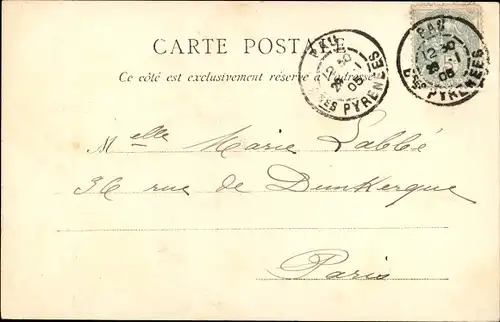 CARTE POSTALE
Ce côté est exclusivement réservé à l'adresse
PAU
12 30
28 -1
05
BSES PYRENEES
PAU
12 30
28 -1
05
BSES PYRENEES
Melle Marie Labbé
36 rue de Dunkerque
Paris